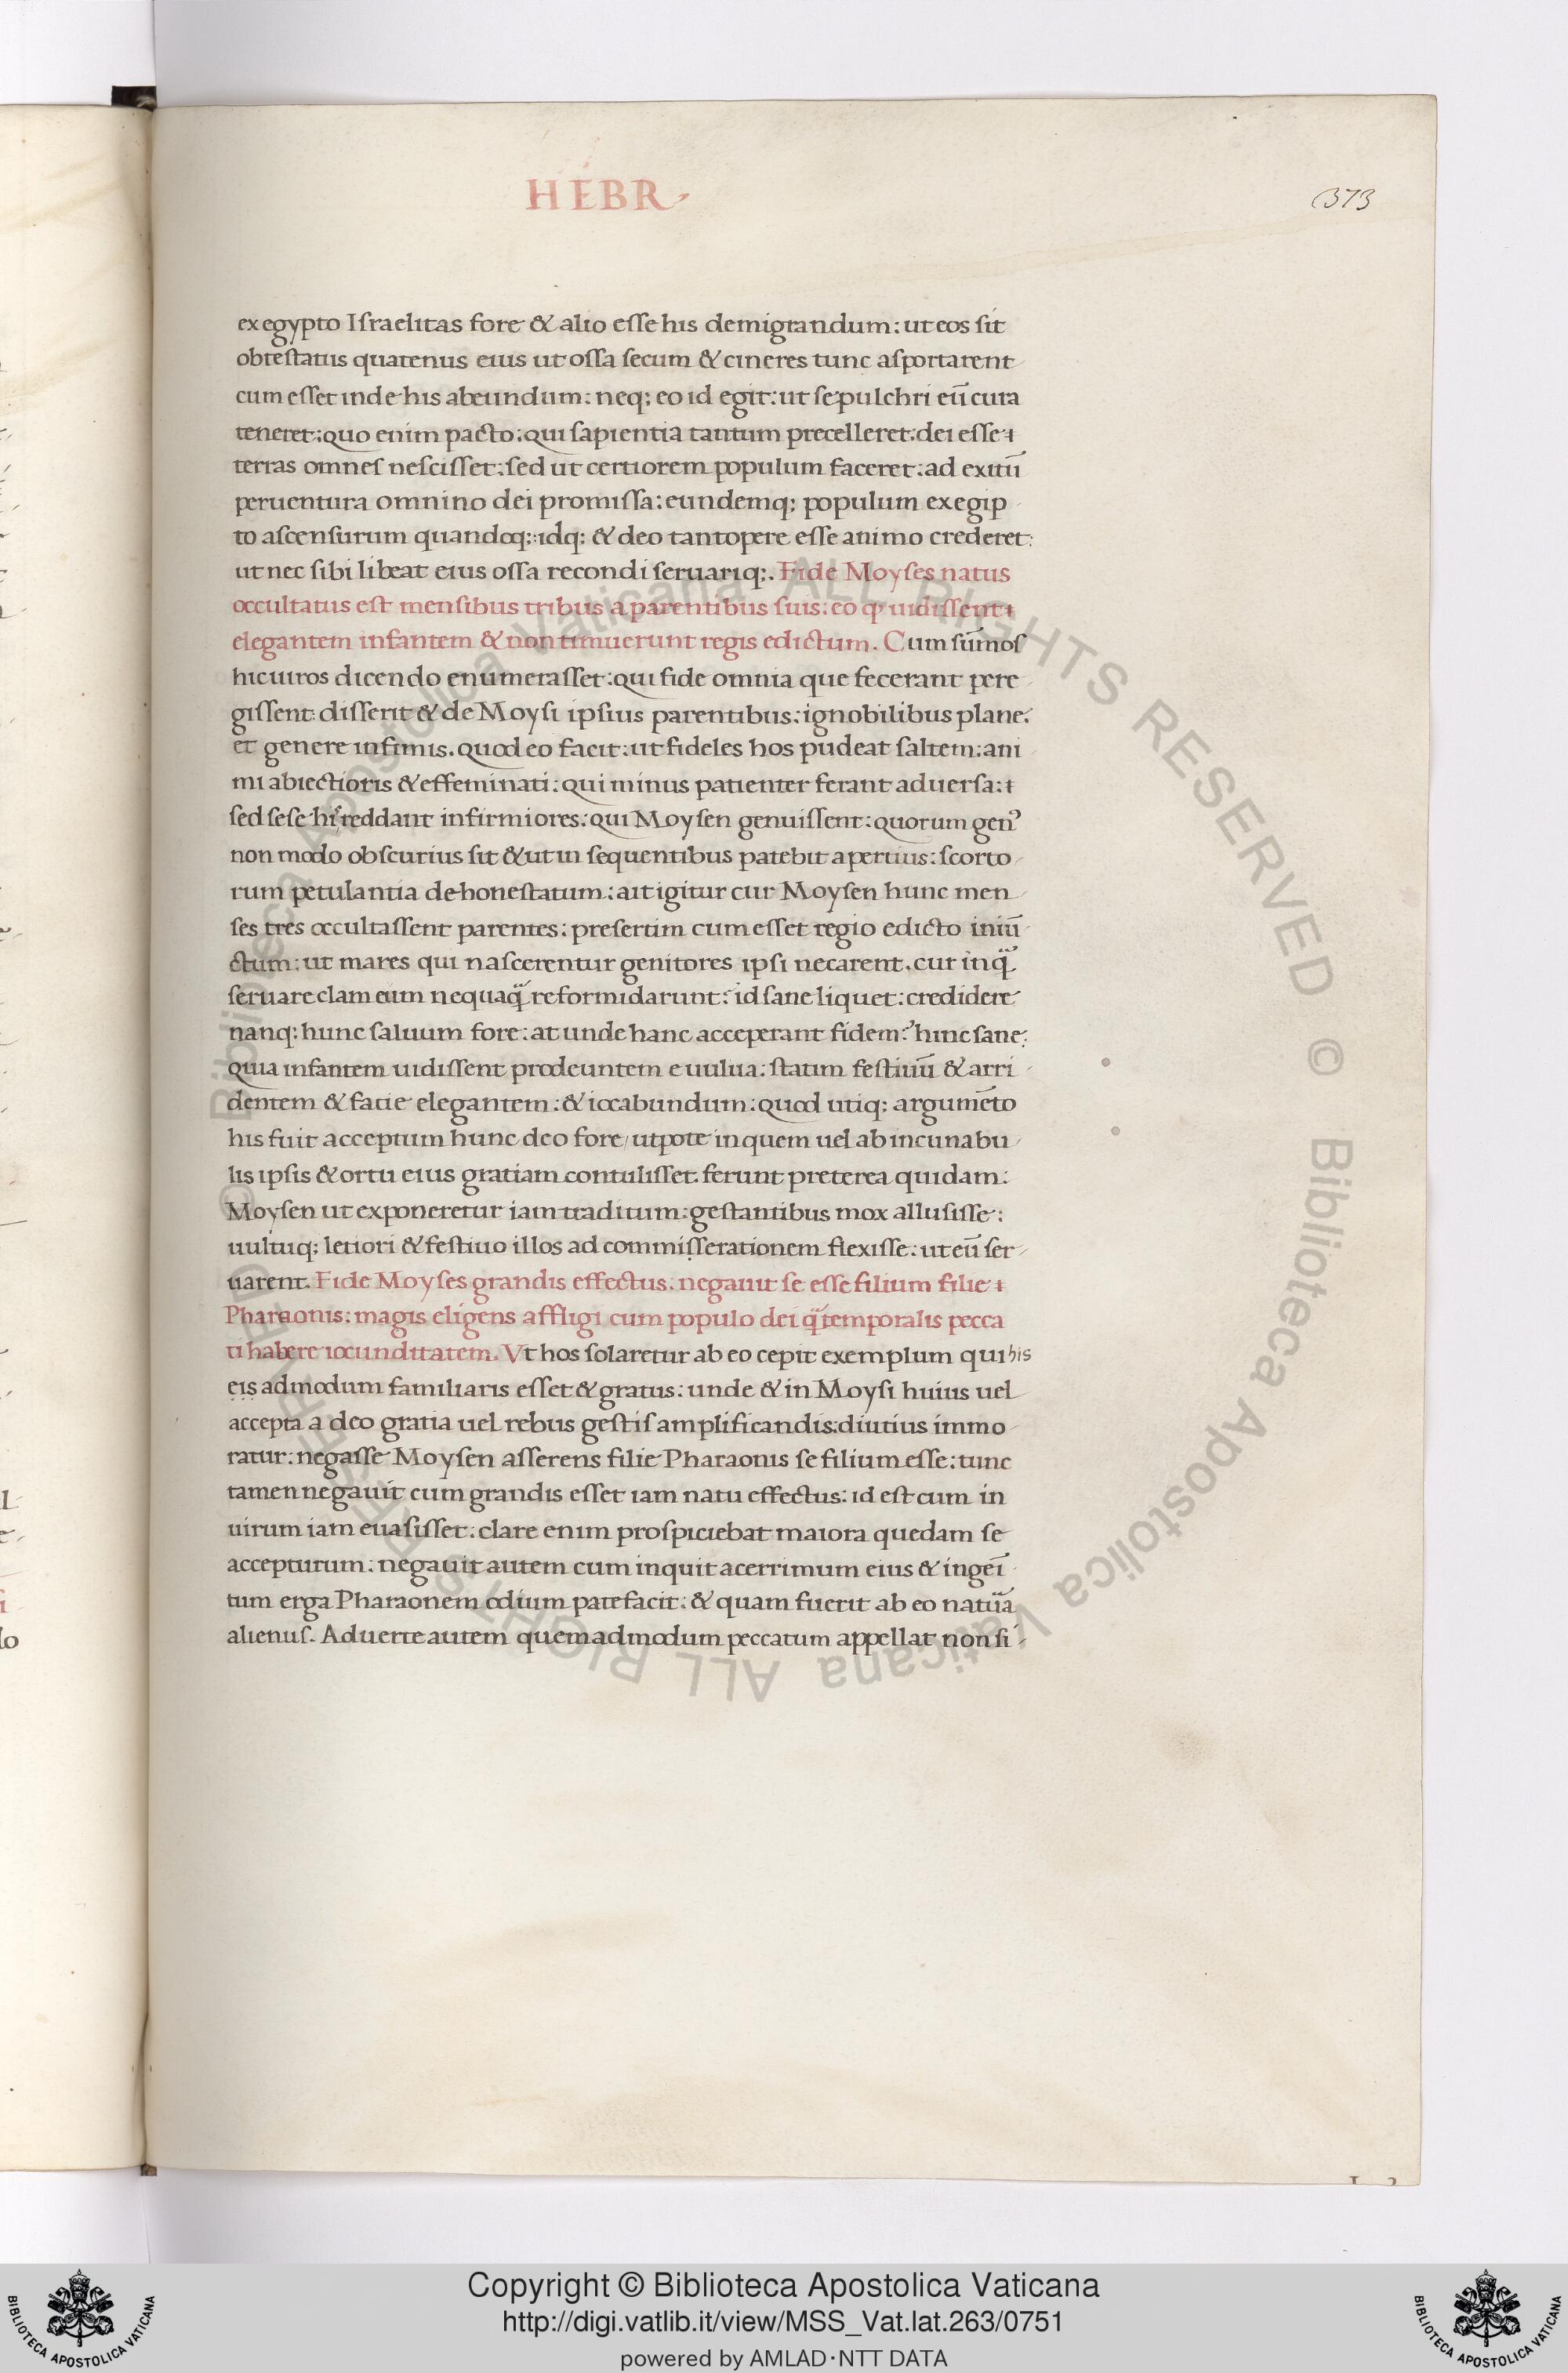 HEBR
373
ex egypto Israelitas fore & alio esse his demigrandum: ut eos sit
obtestatus quatenus eius ut ossa secum & cineres tunc asportarent
cum esset inde his abeundum: neq; eo id egit: ut sepulchri eū cura
teneret: quo enim pacto: qui sapientia tantum precelleret: dei esse
terras omnes nescisset: sed ut certiorem populum faceret: ad exitū
peruentura omnino dei promissa: eundemq; populum ex egip
to ascensurum quandoq;: idq; & deo tantopere esse animo crederet:
ut nec sibi libeat eius ossa recondi seruariq;. Fide Moyses natus
occultatus est mensibus tribus a parentibus suis: eo ꝙ uidissent
elegantem infantem & non timuerunt regis edictum. Cum sūmos
hic uiros dicendo enumerasset: qui fide omnia que fecerant pere
gissent: disserit & de Moysi ipsius parentibus: ignobilibus plane:
et genere infimis. quod eo facit: ut fideles hos pudeat saltem: ani
mi abiectioris & effeminati: qui minus patienter ferant aduersa:
sed sese his reddant infirmiores: qui Moysen genuissent: quorum genꝰ
non modo obscurius sit & ut in sequentibus patebit apertius: scorto
rum petulantia dehonestatum: ait igitur cur Moysen hunc men
ses tres occultassent parentes: presertim cum esset regio edicto iniū
ctum: ut mares qui nascerentur genitores ipsi necarent. cur inq̃
seruare clam eum nequaq̃ reformidarunt: id sane liquet: credidere
nanq; hunc saluum fore: at unde hanc acceperant fidem? hinc sane:
quia infantem uidissent prodeuntem e uulua: statim festiuū & arri
dentem & facie elegantem: & iocabundum: quod utiq; argumēto
his fuit acceptum hunc deo fore / utpote in quem uel ab incunabu
lis ipsis & ortu eius gratiam contulisset. ferunt preterea quidam:
Moysen ut exponeretur iam traditum: gestantibus mox allusisse:
uultuq; letiori & festiuo illos ad commisserationem flexisse: ut eū ser
uarent. Fide Moyses grandis effectus. negauit se esse filium filie
Pharaonis: magis eligens affligi cum populo dei q̃ temporalis pecca
ti habere iocunditatem. Vt hos solaretur ab eo cepit exemplum qui his
eis admodum familiaris esset & gratus: unde & in Moysi huius uel
accepta a deo gratia uel rebus gestis amplificandis: diutius immo
ratur: negasse Moysen asserens filie Pharaonis se filium esse: tunc
tamen negauit cum grandis esset iam natu effectus: id est cum in
uirum iam euasisset: clare enim prospiciebat maiora quedam se
accepturum: negauit autem cum inquit acerrimum eius & ingeī
tum erga Pharaonem odium patefacit: & quam fuerit ab eo natura
alienus. Aduerte autem quemadmodum peccatum appellat non si
© Biblioteca Apostolica Vaticana ALL RIGHTS RESERVED © Biblioteca Apostolica Vaticana ALL RIGHTS RESERVED
Copyright © Biblioteca Apostolica Vaticana
http://digi.vatlib.it/view/MSS_Vat.lat.263/0751
powered by AMLAD·NTT DATA
BIBLIOTECA APOSTOLICA VATICANA
BIBLIOTECA APOSTOLICA VATICANA